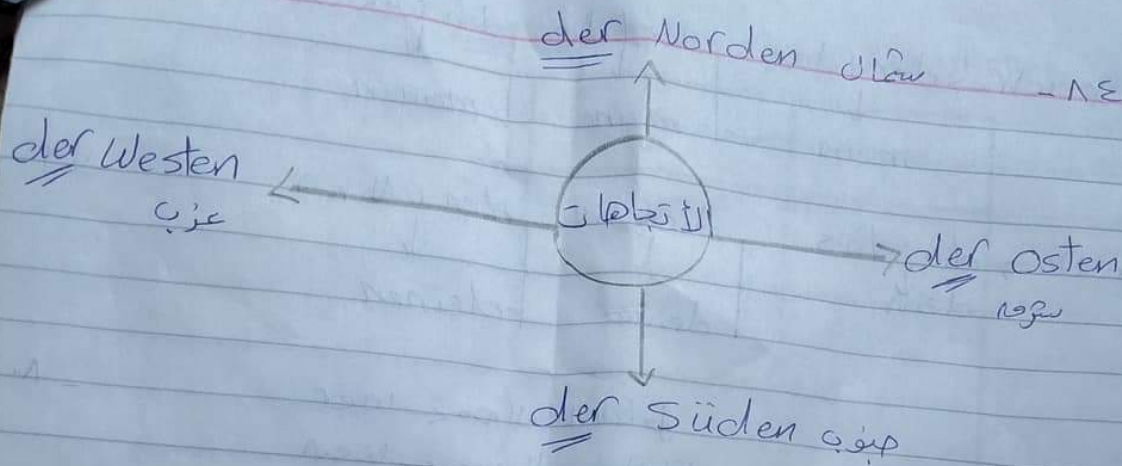 der Norden شمال
٨٤ -
der Westen
غرب
الأتجاهات
der Osten
شرق
der Süden جنوب